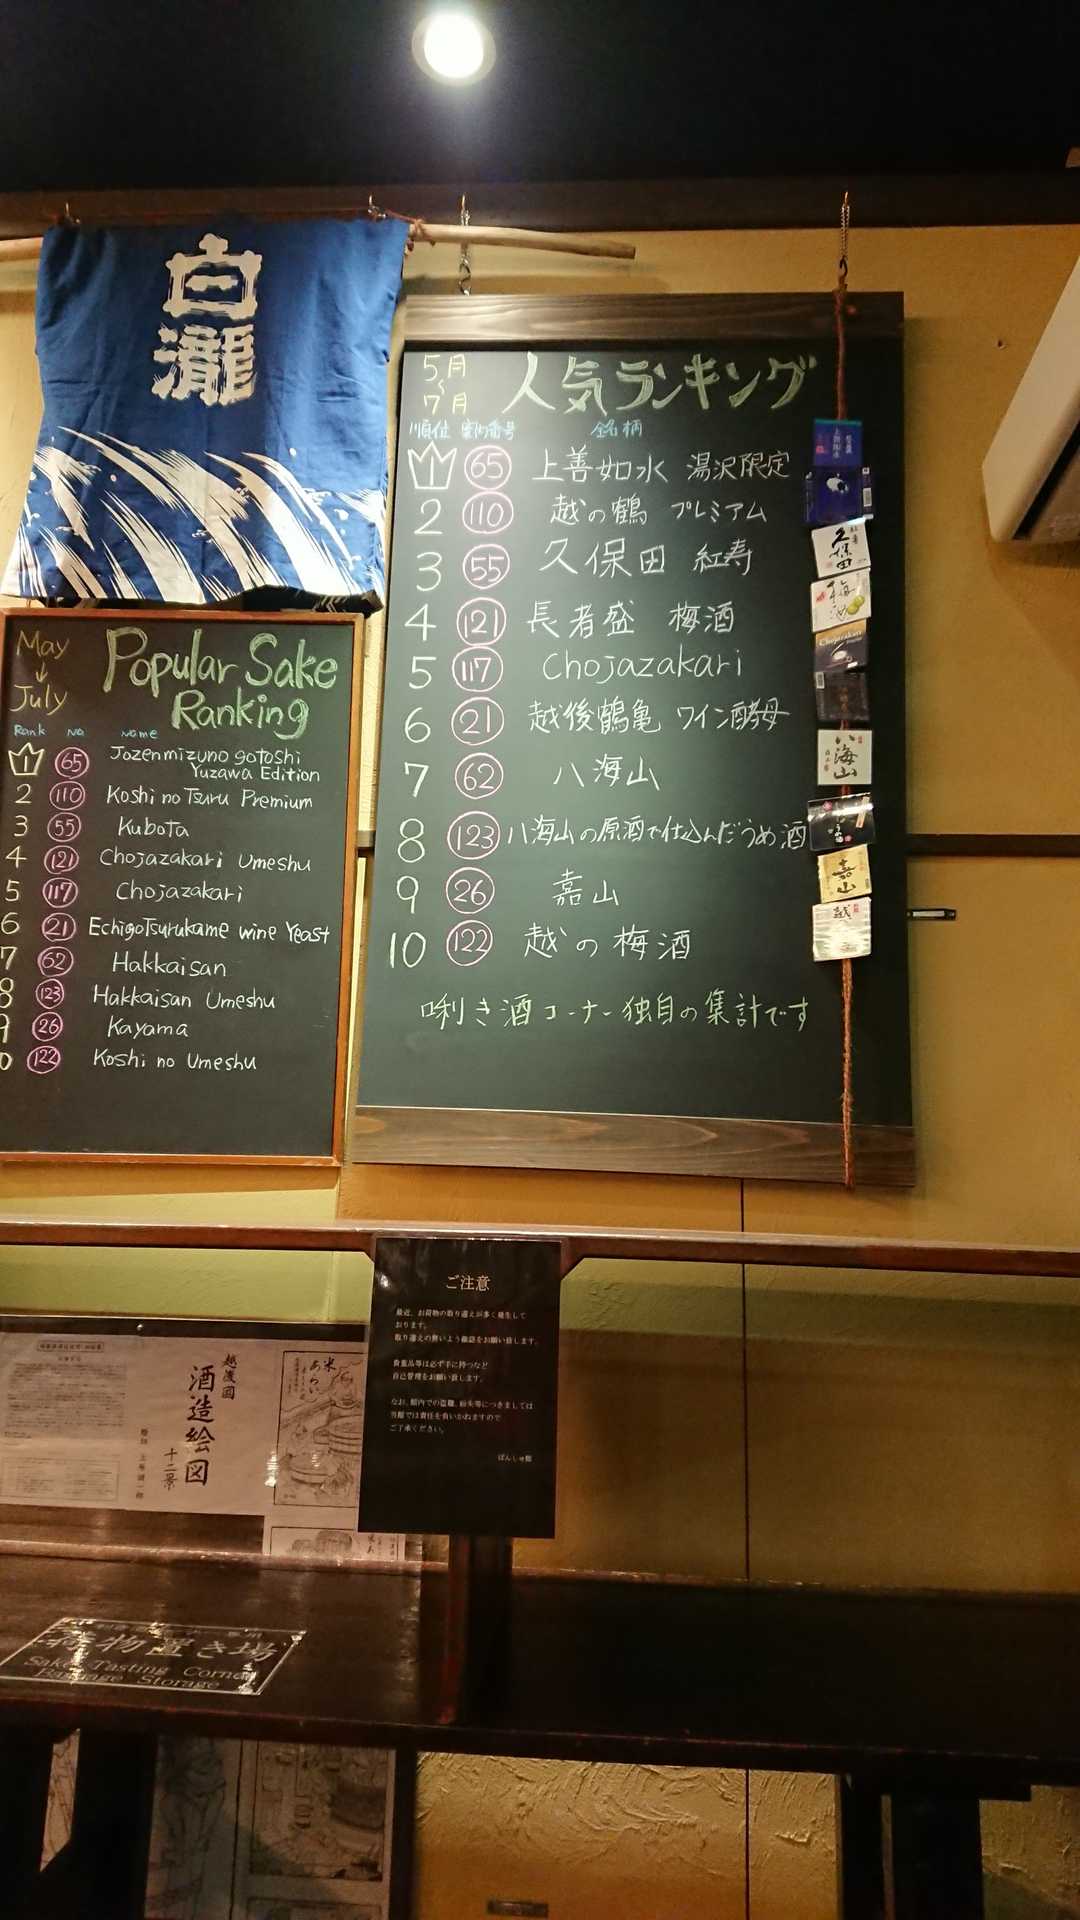 白瀧
May
↓
July
Popular Sake
Ranking
Rank No name
1 65 Jozenmizuno gotoshi
Yuzawa Edition
2 110 Koshi no Tsuru Premium
3 55 Kubota
4 121 Chojazakari Umeshu
5 117 Chojazakari
6 21 EchigoTsurukame wine Yeast
7 62 Hakkaisan
8 123 Hakkaisan Umeshu
9 26 Kayama
0 122 Koshi no Umeshu
5月
〜
7月
人気ランキング
順位 案内番号 銘柄
1 65 上善如水 湯沢限定
2 110 越の鶴 プレミアム
3 55 久保田 紅寿
4 121 長者盛 梅酒
5 117 Chojazakari
6 21 越後鶴亀 ワイン酵母
7 62 八海山
8 123 八海山の原酒で仕込んだうめ酒
9 26 嘉山
10 122 越の梅酒
唎き酒コーナー独自の集計です
久保田
梅酒
Chojazakari
八海山
嘉山
越
ご注意
最近、お荷物の取り違えが多く発生して
おります。
取り違えの無いよう確認をお願い致します。
貴重品等は必ず手に持つなど
自己管理をお願い致します。
なお、館内での盗難、紛失等につきましては
当館では責任を負いかねますので
ご了承ください。
ぽんしゅ館
越後国
酒造絵図
十二景
米
あらい
荷物置き場
Sake Tasting Corner
Baggage Storage